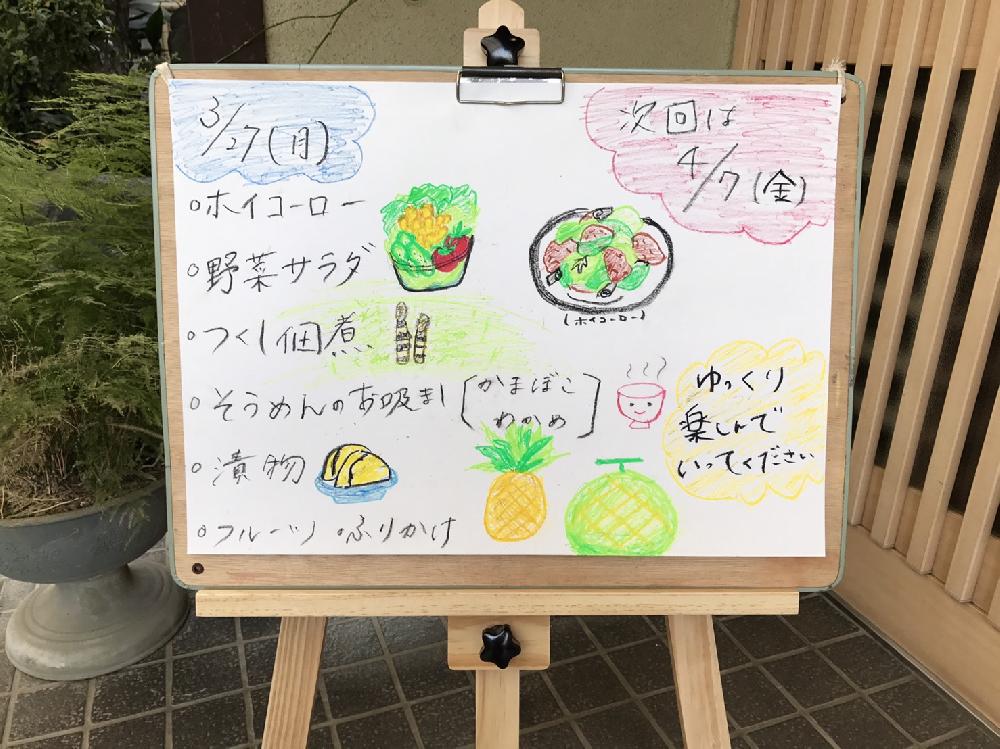 3/27(月)
次回は
4/7(金)
○ホイコーロー
○野菜サラダ
(ホイコーロー)
○つくし佃煮
○そうめんのお吸まし[かまぼこ
わかめ]
ゆっくり
楽しんで
いってください
○漬物
○フルーツ ○ふりかけ